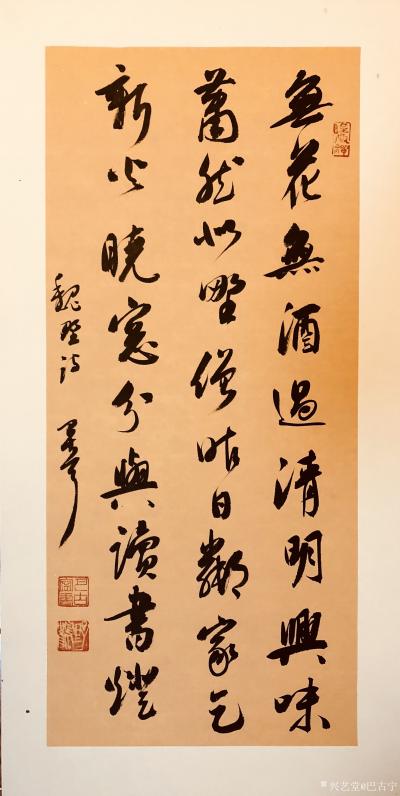 無花無酒過清明興味
蕭然似野僧昨日鄰家乞
新火曉窗分與讀書燈
魏野詩
兴艺堂@巴古宁